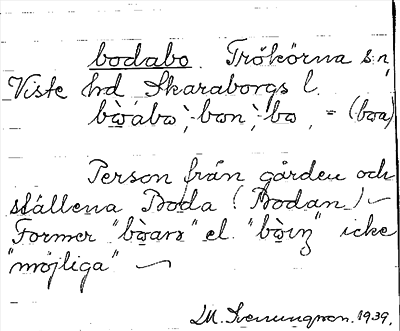 bodabo. Trökörna sn,
Viste hd Skaraborgs l.
bòabo, -bon, -bo, = (boa)
Person från gården och
ställena Boda (Bodan)
Former "bòars" el. "bòiŋ" icke
"möjliga"
1939.